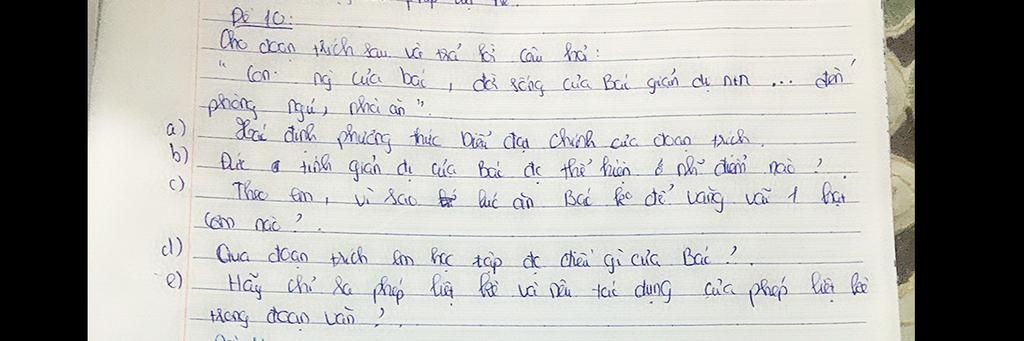 Đề 10:
Cho đoạn trích sau và trả lời câu hỏi:
"Con ng của bác, đời sống của Bác giản dị ntn ... đến
phòng ngủ, nhà ăn".
a) Xác định phương thức biểu đạt chính của đoạn trích.
b) Đức tính giản dị của Bác đc thể hiện ở nh~ điểm nào?
c) Theo em, vì sao lúc ăn Bác ko để vãi 1 hạt
cơm nào?
d) Qua đoạn trích em học tập đc điều gì của Bác?
e) Hãy chỉ ra phép liệt kê và nêu tác dụng của phép liệt kê
trong đoạn văn?